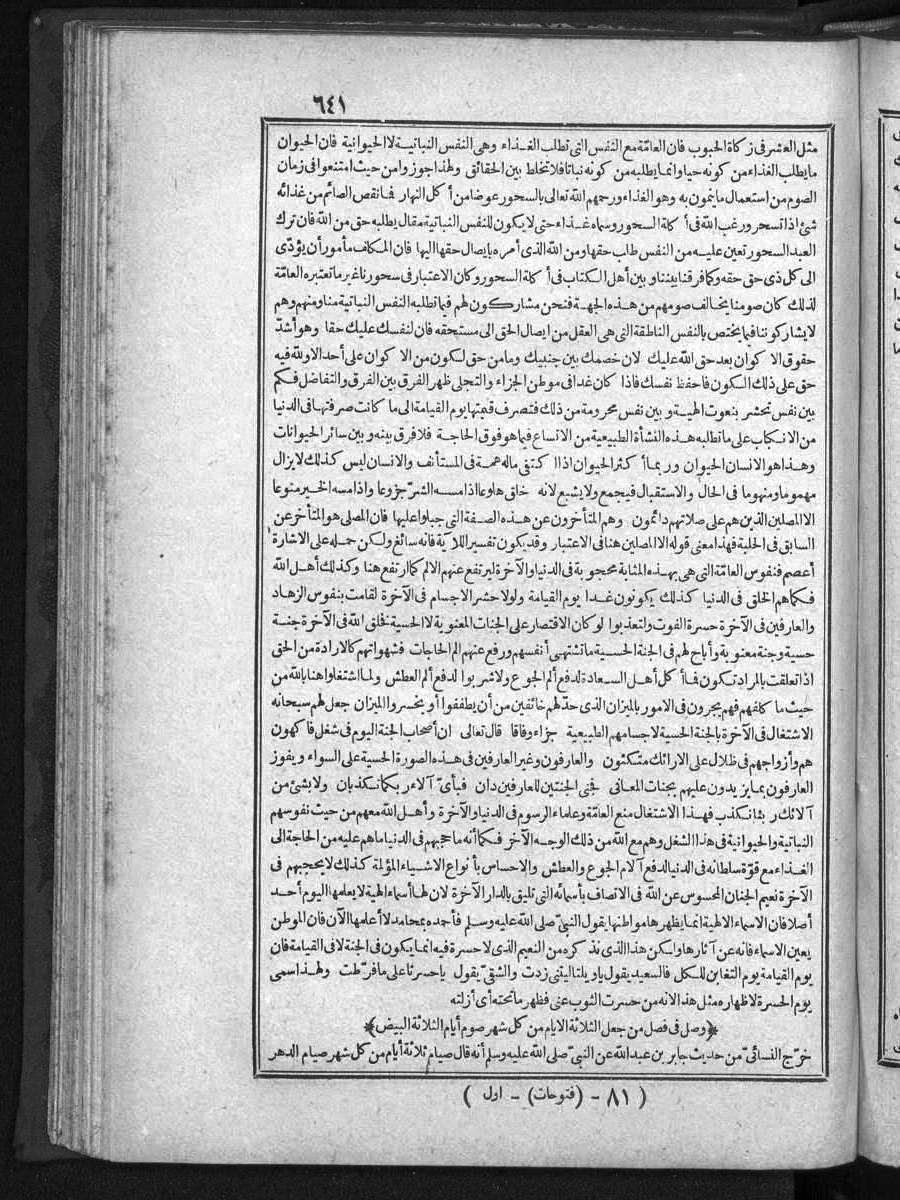 ٦٤١
مثل العشر فى زكاة الحبوب فان العامّة مع النفس التى تطلب الغذاء وهى النفس النباتية لا الحيوانية فان الحيوان
ما يطلب الغذاء من كونه حيا وانما يطلبه من كونه نباتا فلا تخلط بين الحقائق ولهذا جوزوا من حيث امتنعوا فى زمان
الصوم من استعمال ما ينمون به وهو الغذاء ورحمهم الله تعالى بالسحور عوضا من أكل النهار فما نقص الصائم من غذائه
شئ اذا تسحر ورغب الله فى أكلة السحور وسماه غذاء حتى لا يكون للنفس النباتية مقال يطلبه حق من الله فان ترك
العبد السحور تعين عليه من النفس طلب حقها ومن الله الذى أمره بايصال حقها اليها فان المكلف مأمور أن يؤدّى
الى كل ذى حق حقه وكما فرقنا بيننا وبين أهل الكتاب فى أكلة السحور وكان الاعتبار فى سحورنا غير ما تعتبره العامّة
لذلك كان صومنا يخالف صومهم من هذه الجهة فنحن مشاركون لهم فيما تطلبه النفس النباتية منا ومنهم وهم
لا يشاركوننا فيما يختص بالنفس الناطقة التى هى العقل من ايصال الحق الى مستحقه فان لنفسك عليك حقا وهو أشدّ
حقوق الاكوان بعد حق الله عليك لان خصمك بين جنبيك وما من حق لكون من الاكوان على أحد الا ولله فيه
حق على ذلك الكون فاحفظ نفسك فاذا كان غدا فى موطن الجزاء والتجلى ظهر الفرق بين الفرق والتفاضل فكم
بين نفس تحشر بنعوت الهية وبين نفس محرومة من ذلك فتصرف قيمتها يوم القيامة الى ما كانت صرفتها فى الدنيا
من الانكباب على ما تطلبه هذه النشأة الطبيعية من الاتساع فيما هو فوق الحاجة فلا فرق بينه وبين سائر الحيوانات
وهذا هو الانسان الحيوان وربما أكثر الحيوان اذا اكتفى ماله همة فى المستأنف والانسان ليس كذلك لا يزال
مهموما ومنهوما فى الحال والاستقبال فيجمع ولا يشبع لانه خلق هلوعا اذا مسه الشرّ جزوعا واذا مسه الخير منوعا
الا المصلين الذين هم على صلاتهم دائمون وهم المتأخرون عن هذه الصفة التى جبلوا عليها فان المصلى هو المتأخر عن
السابق فى الحلبة فهذا معنى قوله الا المصلين هنا فى الاعتبار وقد يكون تفسير اللآية فانه سائغ ولكن حمله على الاشارة
أعصم فنفوس العامّة التى هى بهذه المثابة محجوبة فى الدنيا والآخرة ليرتفع عنهم الالم كما ارتفع هنا وكذلك أهل الله
فكما هم الخلق فى الدنيا كذلك يكونون غدا يوم القيامة ولولا حشر الاجسام فى الآخرة لقامت بنفوس الزهاد
والعارفين فى الآخرة حسرة الفوت ولتعذبوا لو كان الاقتصار على الجنات المعنوية لا الحسية فخلق الله فى الآخرة جنة
حسية وجنة معنوية وأباح لهم فى الجنة الحسية ما تشتهى أنفسهم ورفع عنهم ألم الحاجات فشهواتهم كالارادة من الحق
اذا تعلقت بالمراد تكون فما أكل أهل السعادة لدفع ألم الجوع ولا شربوا لدفع ألم العطش ولما اشتغلوا هنا بالله من
حيث ما كلفهم فهم يجرون فى الامور بالميزان الذى حدّ لهم خائفين من أن يطففوا أو يخسروا الميزان جعل لهم سبحانه
الاشتغال فى الآخرة بالجنة الحسية لاجسامهم الطبيعية جزاء وفاقا قال تعالى ان أصحاب الجنة اليوم فى شغل فاكهون
هم وأزواجهم فى ظلال على الارائك متكئون والعارفون وغير العارفين فى هذه الصورة الحسية على السواء ويفوز
العارفون بما يزيدون عليهم بجنات المعانى فجنى الجنتين للعارفين دان فبأىّ آلاء ربكما تكذبان ولا بشئ من
آلائك ربنا نكذب فهذا الاشتغال منع العامّة وعلماء الرسوم فى الدنيا والآخرة وأهل الله معهم من حيث نفوسهم
النباتية والحيوانية فى هذا الشغل وهم مع الله من ذلك الوجه الآخر فكما أنه ما حجبهم فى الدنيا ما هم عليه من الحاجة الى
الغذاء مع قوّة سلطانه فى الدنيا لدفع آلام الجوع والعطش والاحساس بأنواع الاشياء المؤلمة كذلك لا يحجبهم فى
الآخرة نعيم الجنان المحسوس عن الله فى الاتصاف بأسمائه التى تليق بالدار الآخرة لان لها أسماء الهية لا يعلمها اليوم أحد
أصلا فان الاسماء الالهية انما يظهرها مواطنها يقول النبىّ صلى الله عليه وسلم فأحمده بمحامد لا أعلمها الآن فان الموطن
يعين الاسماء فانه عن آثارها ولكن هذا الذى نذكره من النعيم الذى لا حسرة فيه انما يكون فى الجنة لا فى القيامة فان
يوم القيامة يوم التغابن للكل فالسعيد يقول ياويلتا ليتنى زدت والشقىّ يقول ياحسرتا على ما فرّطت ولهذا سمى
يوم الحسرة لاظهاره مثل هذا لانه من حسرت الثوب عنى فظهر ما تحته أى أزلته
﴿وصل فى فصل من جعل الثلاثة الايام من كل شهر صوم أيام الثلاثة البيض﴾
خرّج النسائىّ من حديث جابر بن عبد الله عن النبىّ صلى الله عليه وسلم أنه قال صيام ثلاثة أيام من كل شهر صيام الدهر
( ٨١ - (فتوحات) - اول )